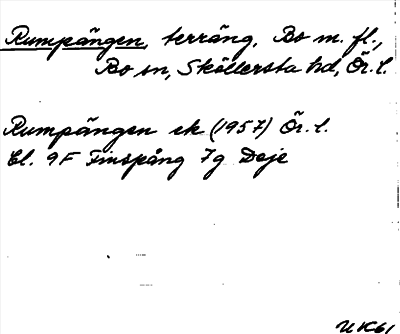 Rumpängen, terräng, Bo m. fl.,
Bo sn, Sköllersta hd, Ör. l.
Rumpängen ek (1957) Ör. l.
Bl. 9F Finspång 7g Deje
U K61